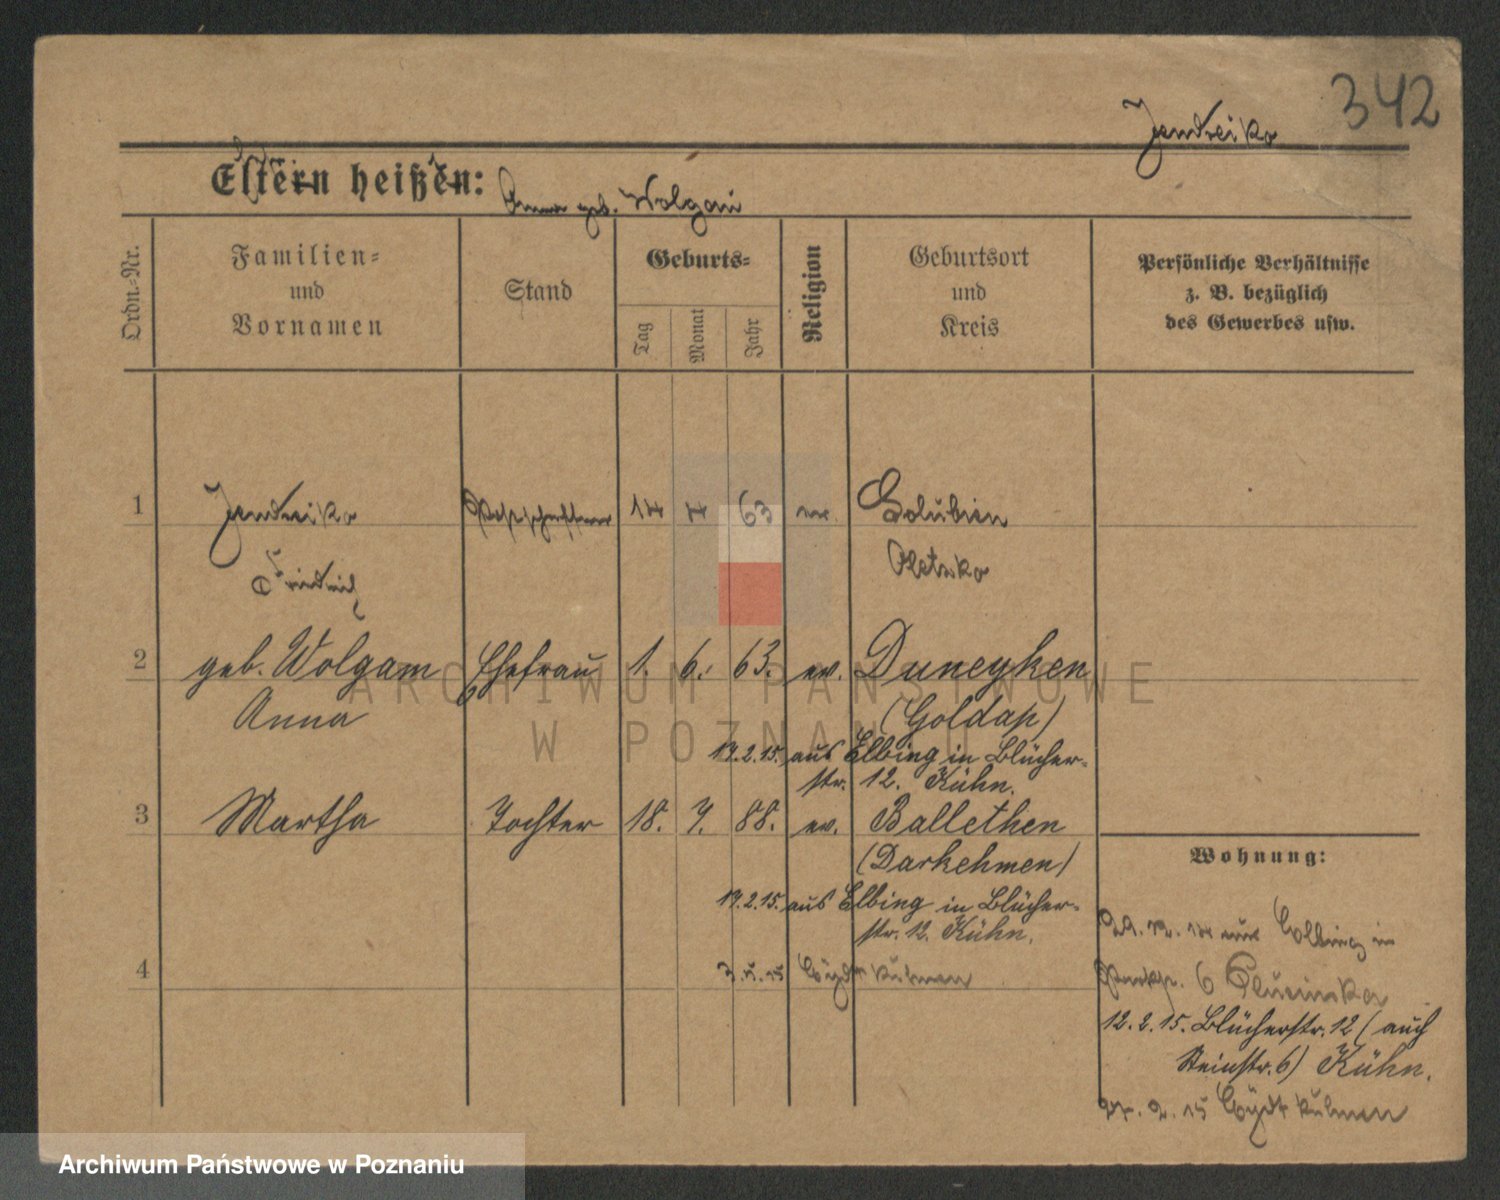 342
Jendreiko
Eltern heißen:
Anna geb. Wolgam
Ordn.=Nr.
Familien=
und
Vornamen
Stand
Geburts=
Tag
Monat
Jahr
Religion
Geburtsort
und
Kreis
Persönliche Verhältnisse
z. B. bezüglich
des Gewerbes usw.
1 Jendreiko Postschaffner 14 4 63 ev. Golubien
Friedrich Oletzko
2 geb. Wolgam Ehefrau 1. 6. 63. ev. Duneyken
Anna (Goldap)
19.2.15. aus Elbing in Blücher-
str. 12. Kühn.
3 Martha Tochter 18. 7. 88. ev. Ballethen
(Darkehmen)
19.2.15. aus Elbing in Blücher-
str. 12. Kühn.
4 3.5.15 Eydtkuhnen
Wohnung:
29.12.14 aus Elbing in
6
12.2.15. Blücherstr. 12 (auch
Steinstr. 6) Kühn.
27.2.15 Eydtkuhnen
ARCHIWUM PAŃSTWOWE
W POZNANIU
Archiwum Państwowe w Poznaniu